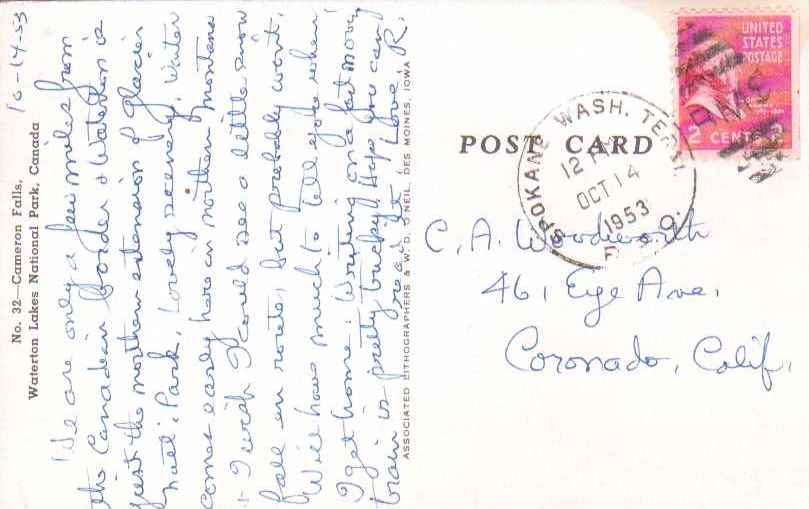 No. 32—Cameron Falls,
Waterton Lakes National Park, Canada
10-14-53
We are only a few miles from
the Canadian border & Waterton is
just the northern extension of Glacier
Nat'l. Park. Lovely scenery. Winter
comes early here in northern Montana
+ I wish I could see a little snow
fall en route, but probably won't.
Will have much to tell you when
I get home. Writing on a fast moving
train is pretty bucky! Hope you can
read it! Love, R.
ASSOCIATED LITHOGRAPHERS & W. D. O'NEIL, DES MOINES, IOWA
POST CARD
SPOKANE WASH. TERM.
12
OCT 14
1953
UNITED
STATES
POSTAGE
2 CENTS 2
C. A. Woodworth
461 Eye Ave.
Coronado, Calif.